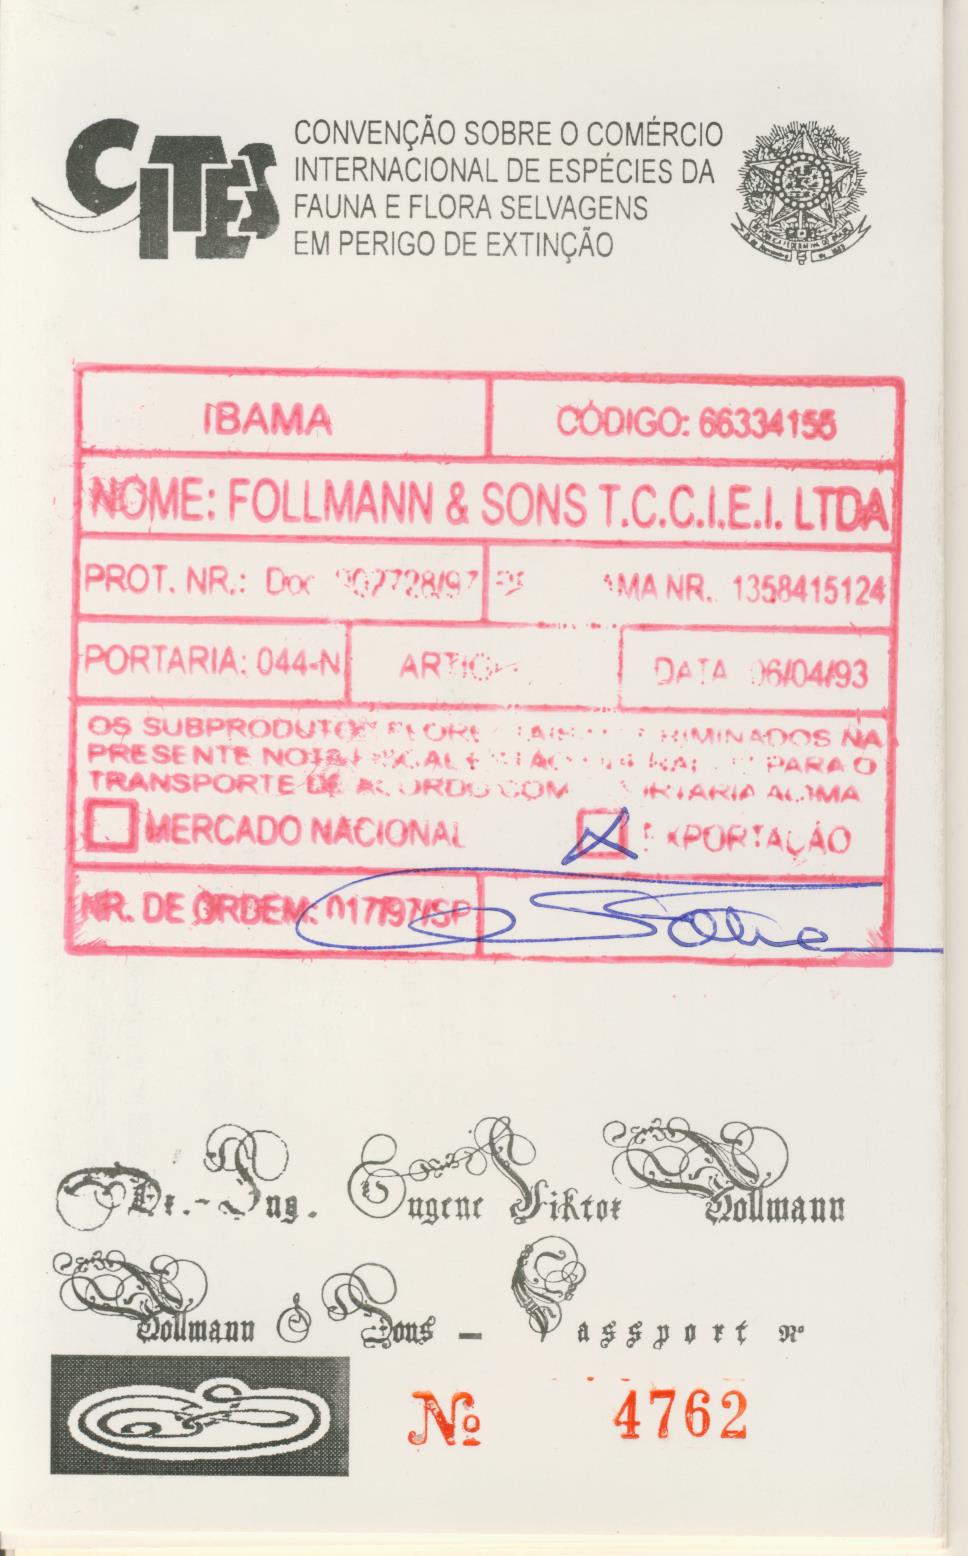 CITES
CONVENÇÃO SOBRE O COMÉRCIO
INTERNACIONAL DE ESPÉCIES DA
FAUNA E FLORA SELVAGENS
EM PERIGO DE EXTINÇÃO
IBAMA CÓDIGO: 66334155
NOME: FOLLMANN & SONS T.C.C.I.E.I. LTDA
PROT. NR.: Doc 907728/97 MA NR. 1358415124
PORTARIA: 044-N DATA 06/04/93
OS SUBPRODUTOS NA
PRESENTE PARA O
TRANSPORTE DE ACORDO COM ACIMA
MERCADO NACIONAL EXPORTAÇÃO
NR. DE ORDEM: 017/97/SP
Dr.-Ing. Eugene Viktor Follmann
Follmann & Sons - Passport Nº
Nº 4762